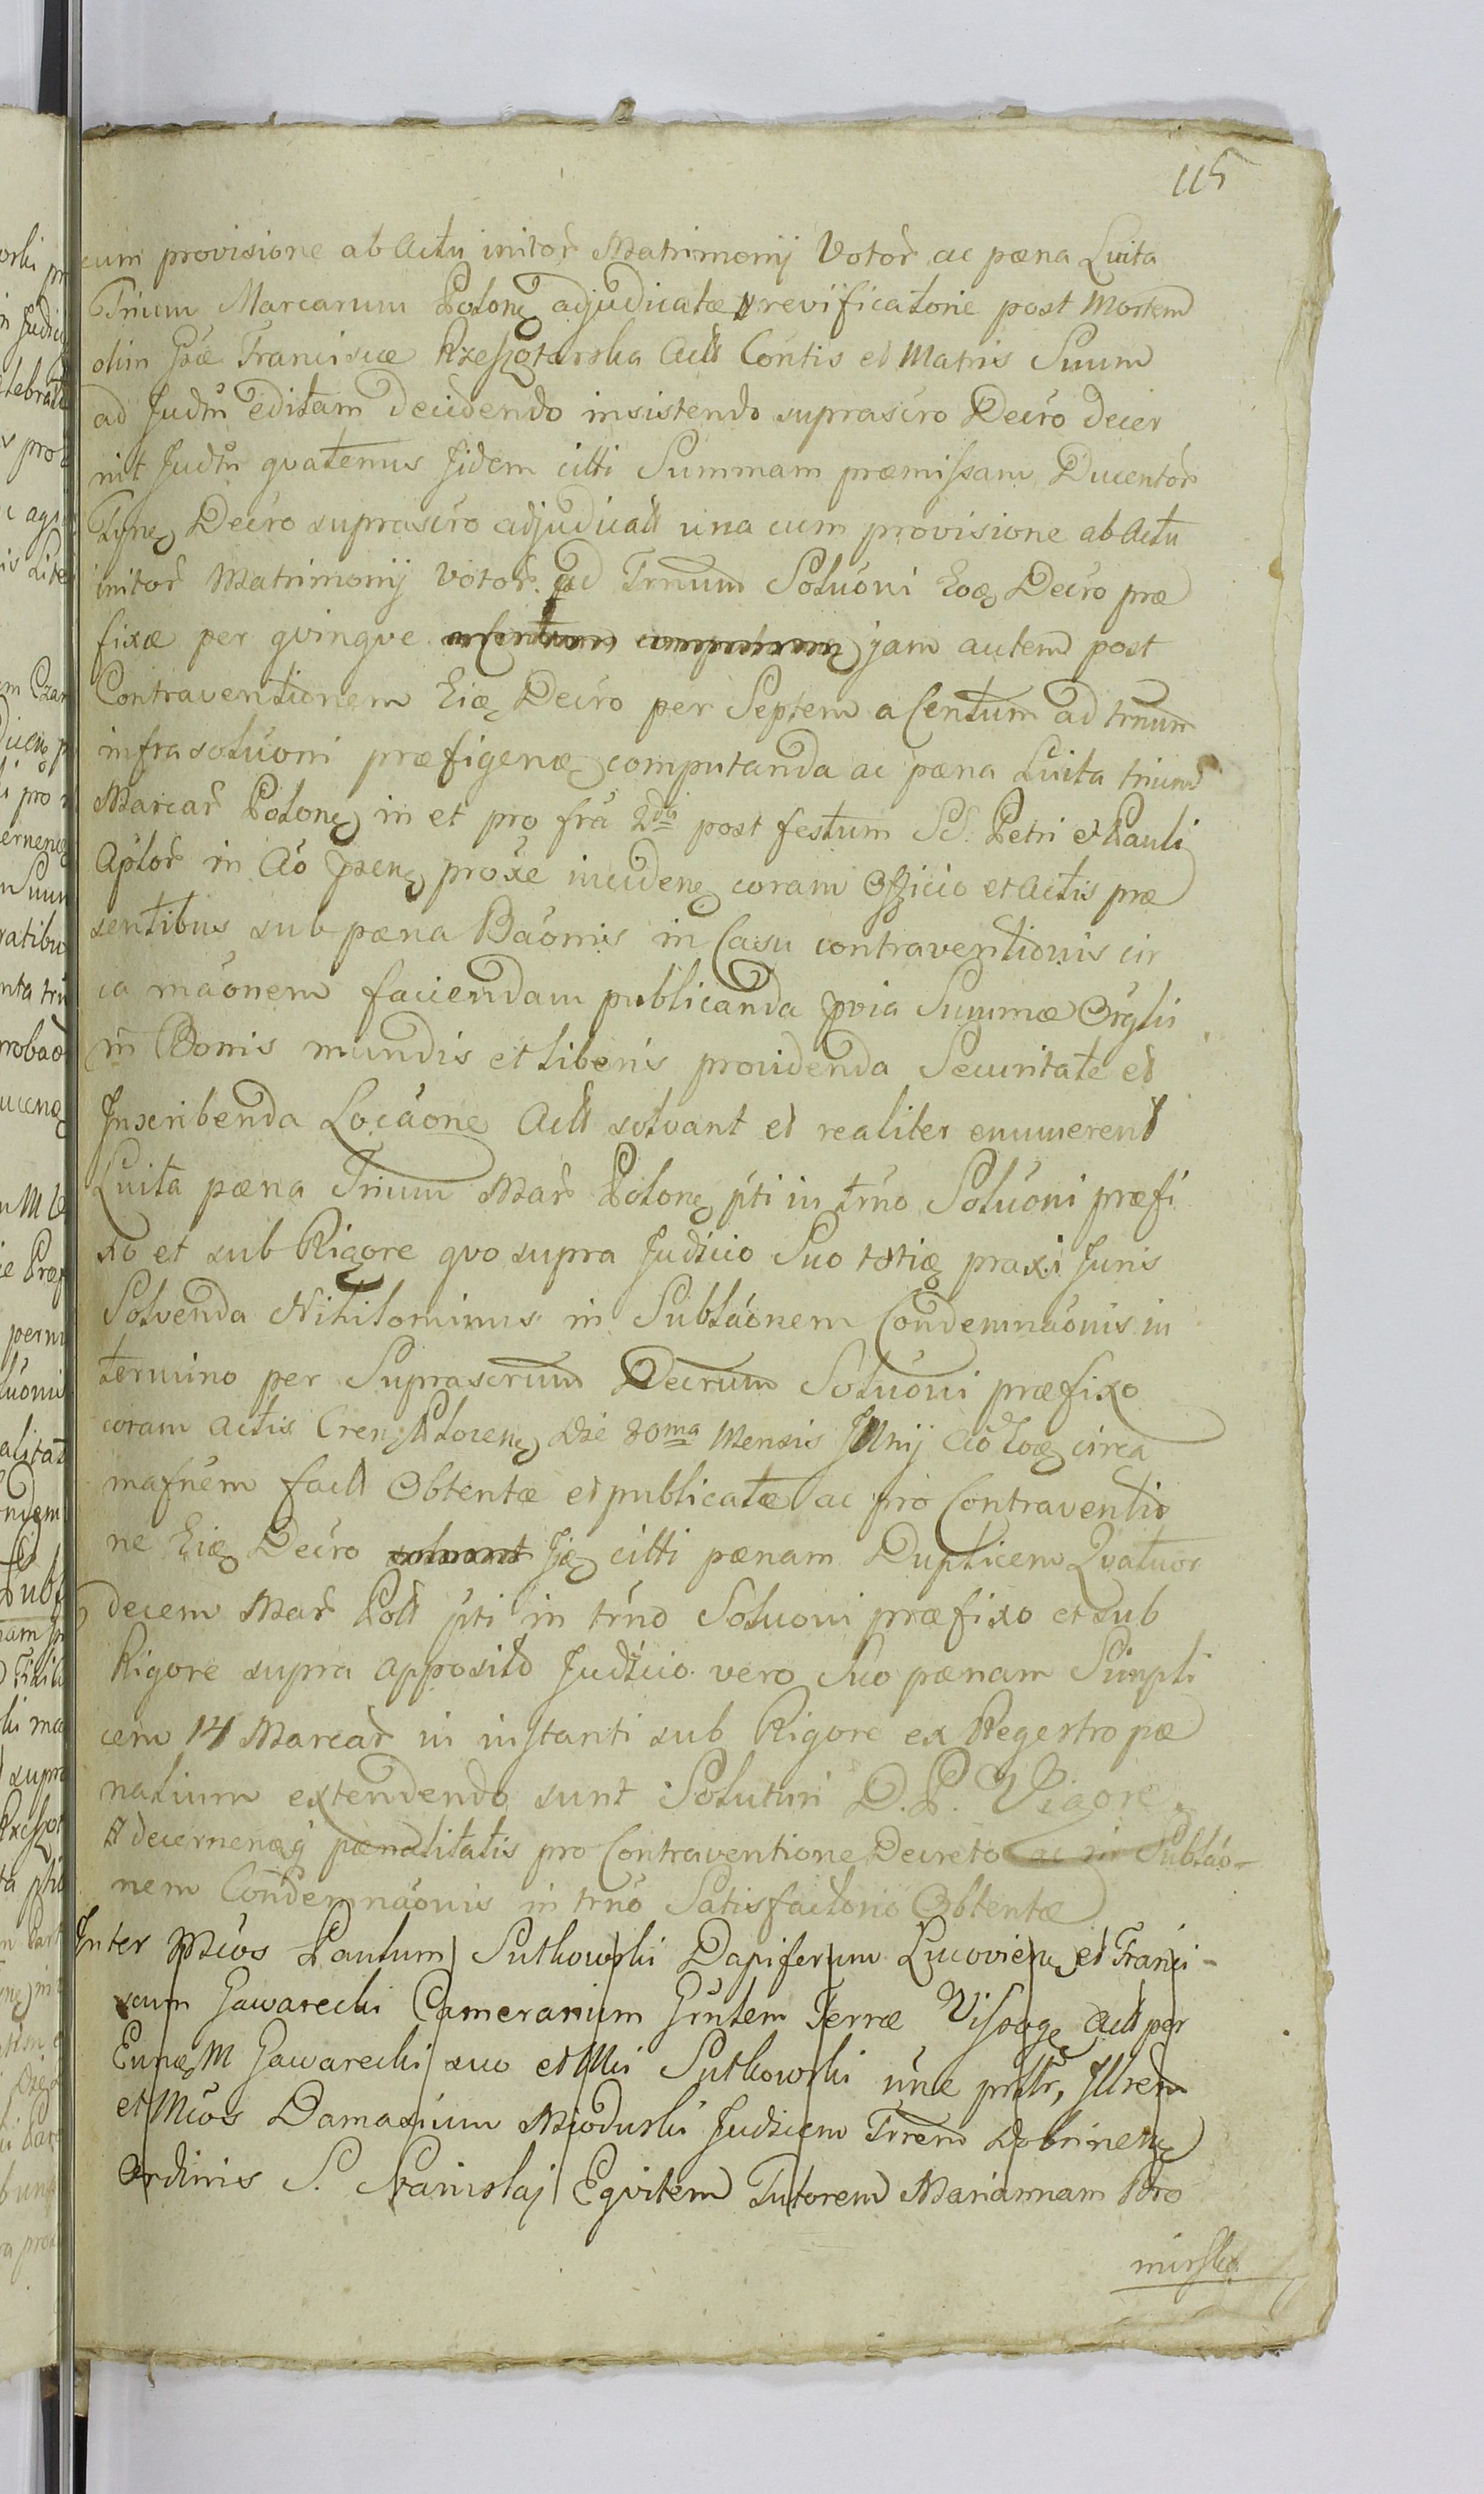 115
cum provisione ab Actu initor Matrimonij Votor ac pæna Luita
Trium Marcarum Polone adjudicatæ revificatorie post Mortem
olim Gsæ Franciscæ Rzeszotarska Actt Contis et Matris Suum
ad Judm editam decidendo insistendo suprascro Decro decer
nit Judm qvatenus Jidem citti Summam præmissam Ducentor
Tyne Decro suprascro adjudicatt una cum provisione ab Actu
initor Matrimonij votor ad Trnum Soluoni Eoę Decro præ
fixæ per qvinqve a Centum computanda jam autem post
Contraventionem Eię Decro per Septem a Centum ad trnum
infra soluoni præfigenę computanda ac pæna Luita trium
Marcar Polonę in et pro fra 2da post festum SS. Petri et Pauli
Aplor in Ao præsenę proxe incidenę coram Officio et Actis præ
sentibus sub pæna Baonis in Casu contraventionis cir
ca maonem faciendam publicanda prvia Summæ Orglis
in Bonis mundis et liberis providenda Securitate et
Inscribenda Locaone Actt solvant et realiter enumerent
Luita pæna Trium Mar Polonę pti in trno Soluoni præfi
xo et sub Rigore qvo supra Judicio Suo tstię praxi Juris
Solvenda Nihilominus in Sublaonem Condemnaonis in
termino per Suprascrum Decrum Soluoni præfixo
coram Actis Cren Plocenę Die 30ma Mensis Junij Ao Eoę circa
mafnem factt Obtentæ et publicatæ ac pro Contraventio
ne Eię Decro solvant Jię citti pænam Duplicem Qvatuor
decem Mar Poll pti in trno Soluoni præfixo et sub
Rigore supra apposito Judicio vero Suo pænam Simpli
cem 14 Marcar in instanti sub Rigore ex Regestro pæ
nalium extendendo sunt Soluturi D. P. Vigore
decernenę pænalitatis pro Contraventione Decreto ac in Sublao-
nem Condemnaonis in trno Satisfactorio Obtentæ
Inter Mcos Paulum Sutkowski Dapiferum Lucoviene et Franci-
scum Gawarecki Camerarium Grntem Terræ Vissogę Actt per
Eunę M Gawarecki suo et Mci Sutkowski nne prntr, Jllrem
et Mcos Damasium Mioduski Judicem Trrem Dobrinenę
Ordinis S. Stanislaj Eqvitem Tutorem Mariannam Bro
mirska